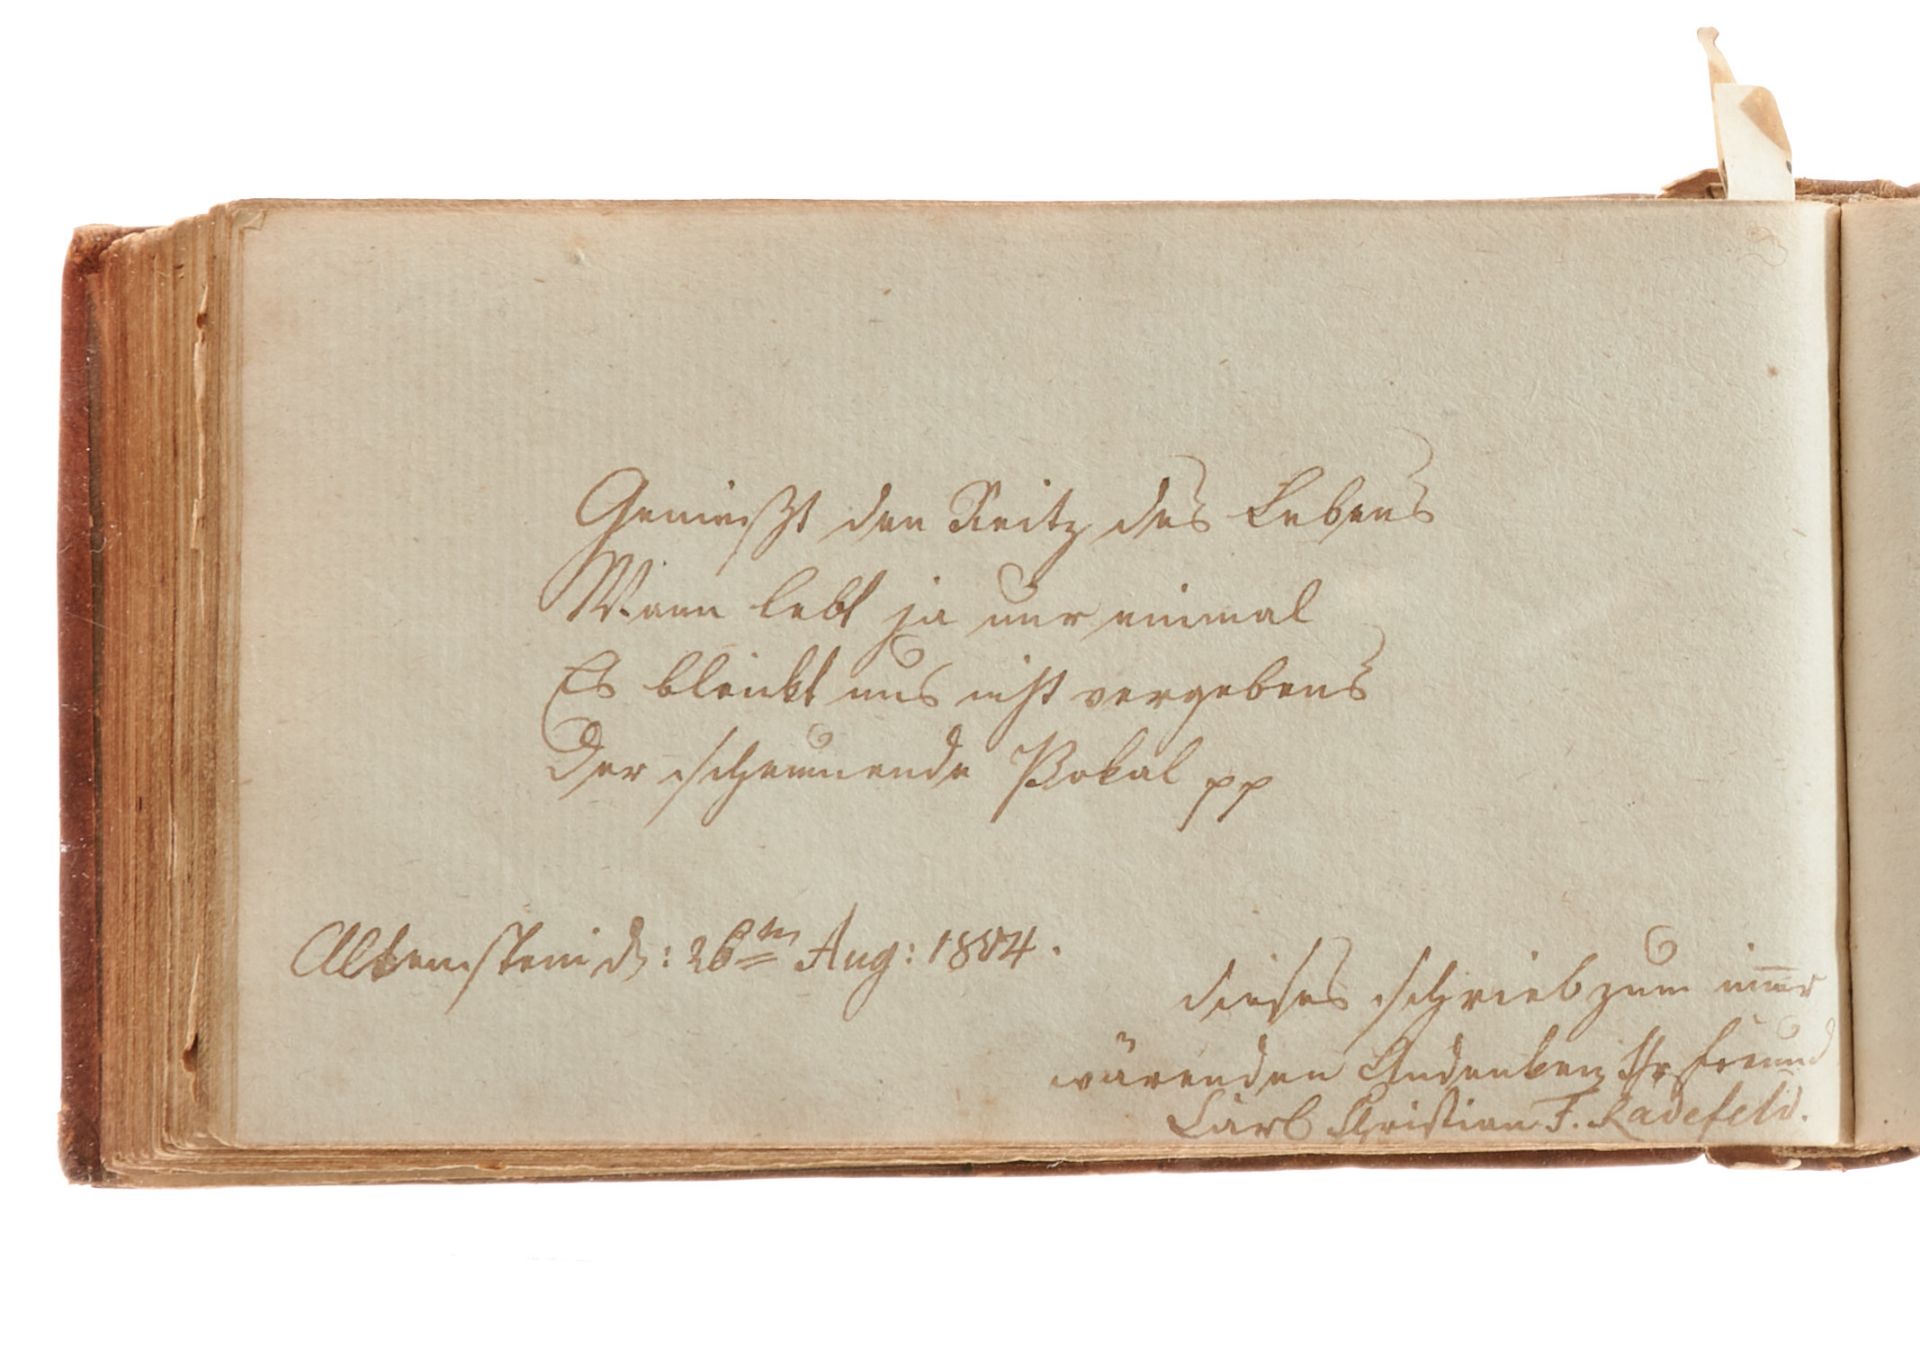 Genießt den Reitz des Lebens
Mann lebt ja nur einmal
Es blinkt uns nicht vergebens
Der schäumende Pokal pp
Altenstein d: 26ten Aug: 1804.
dieses schrieb zum immer
wärenden Andenken Ihr Freund
Carl Christian F. Radefeld.